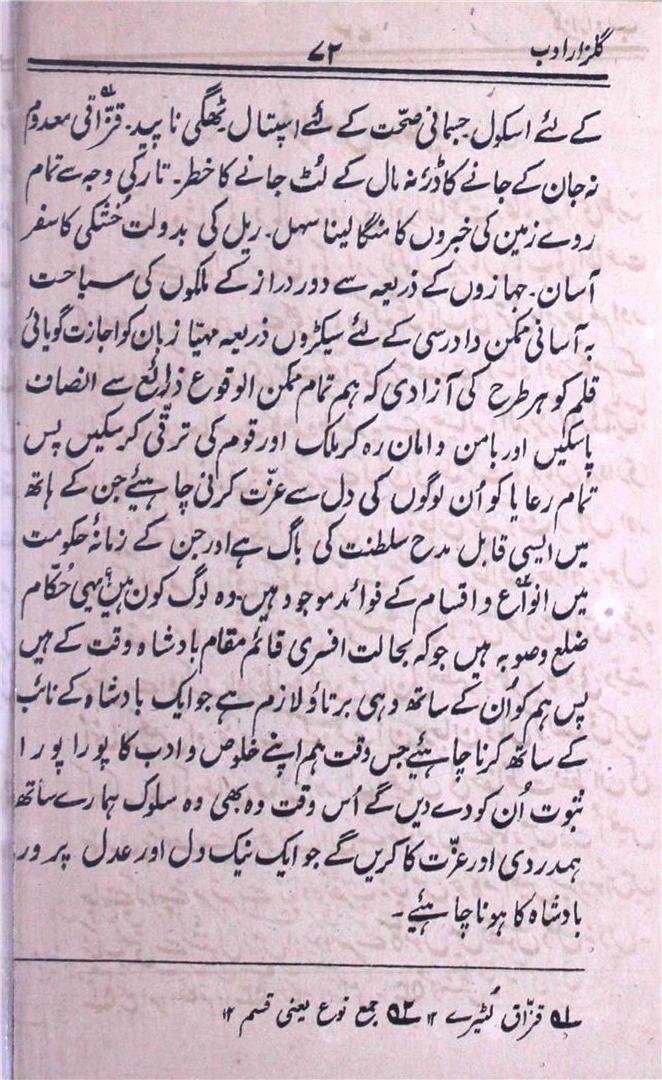 گلزار ادب ۷۲
کے لئے اسکول جسمانی صحّت کے لئے اسپتال ٹھگی ناپید۔ قزّاقی۵۱ معدوم
نہ جان کے جانے کا ڈر نہ مال کے لُٹ جانے کا خطر۔ تار کی وجہ سے تمام
روے زمین کی خبروں کا منگا لینا سہل۔ ریل کی بدولت خُشکی کا سفر
آسان۔ جہازوں کے ذریعہ سے دور دراز کے ملکوں کی سیاحت
بہ آسانی ممکن دادرسی کے لئے سیکڑوں ذریعہ مہیّا زبان کو اجازت گویائی
قلم کو ہر طرح کی آزادی کہ ہم تمام ممکن الوقوع ذرائع سے انصاف
پاسکیں اور بامن و امان رہ کر ملک اور قوم کی ترقّی کرسکیں پس
تمام رعایا کو اُن لوگوں کی دل سے عزّت کرنی چاہئیے جن کے ہاتھ
میں ایسی قابل مدح سلطنت کی باگ ہے اور جن کے زمانۂ حکومت
میں انواع۵۲ و اقسام کے فوائد موجود ہیں۔ وہ لوگ کون ہیں؟ یہی حُکّام
ضلع وصوبہ ہیں جوکہ بحالت افسری قائم مقام بادشاہ وقت کے ہیں
پس ہم کو اُن کے ساتھ وہی برتاؤ لازم ہے جو ایک بادشاہ کے نائب
کے ساتھ کرنا چاہئیے جس وقت ہم اپنے خلوص و ادب کا پورا پورا
ثبوت اُن کو دے دیں گے اُس وقت وہ بھی وہ سلوک ہمارے ساتھ
ہمدردی اور عزّت کا کریں گے جو ایک نیک دل اور عدل پرور
بادشاہ کا ہونا چاہئیے۔
۵۱ قزّاق لُٹیرے ۱۲ ۵۲ جمع نوع یعنی قسم ۱۲